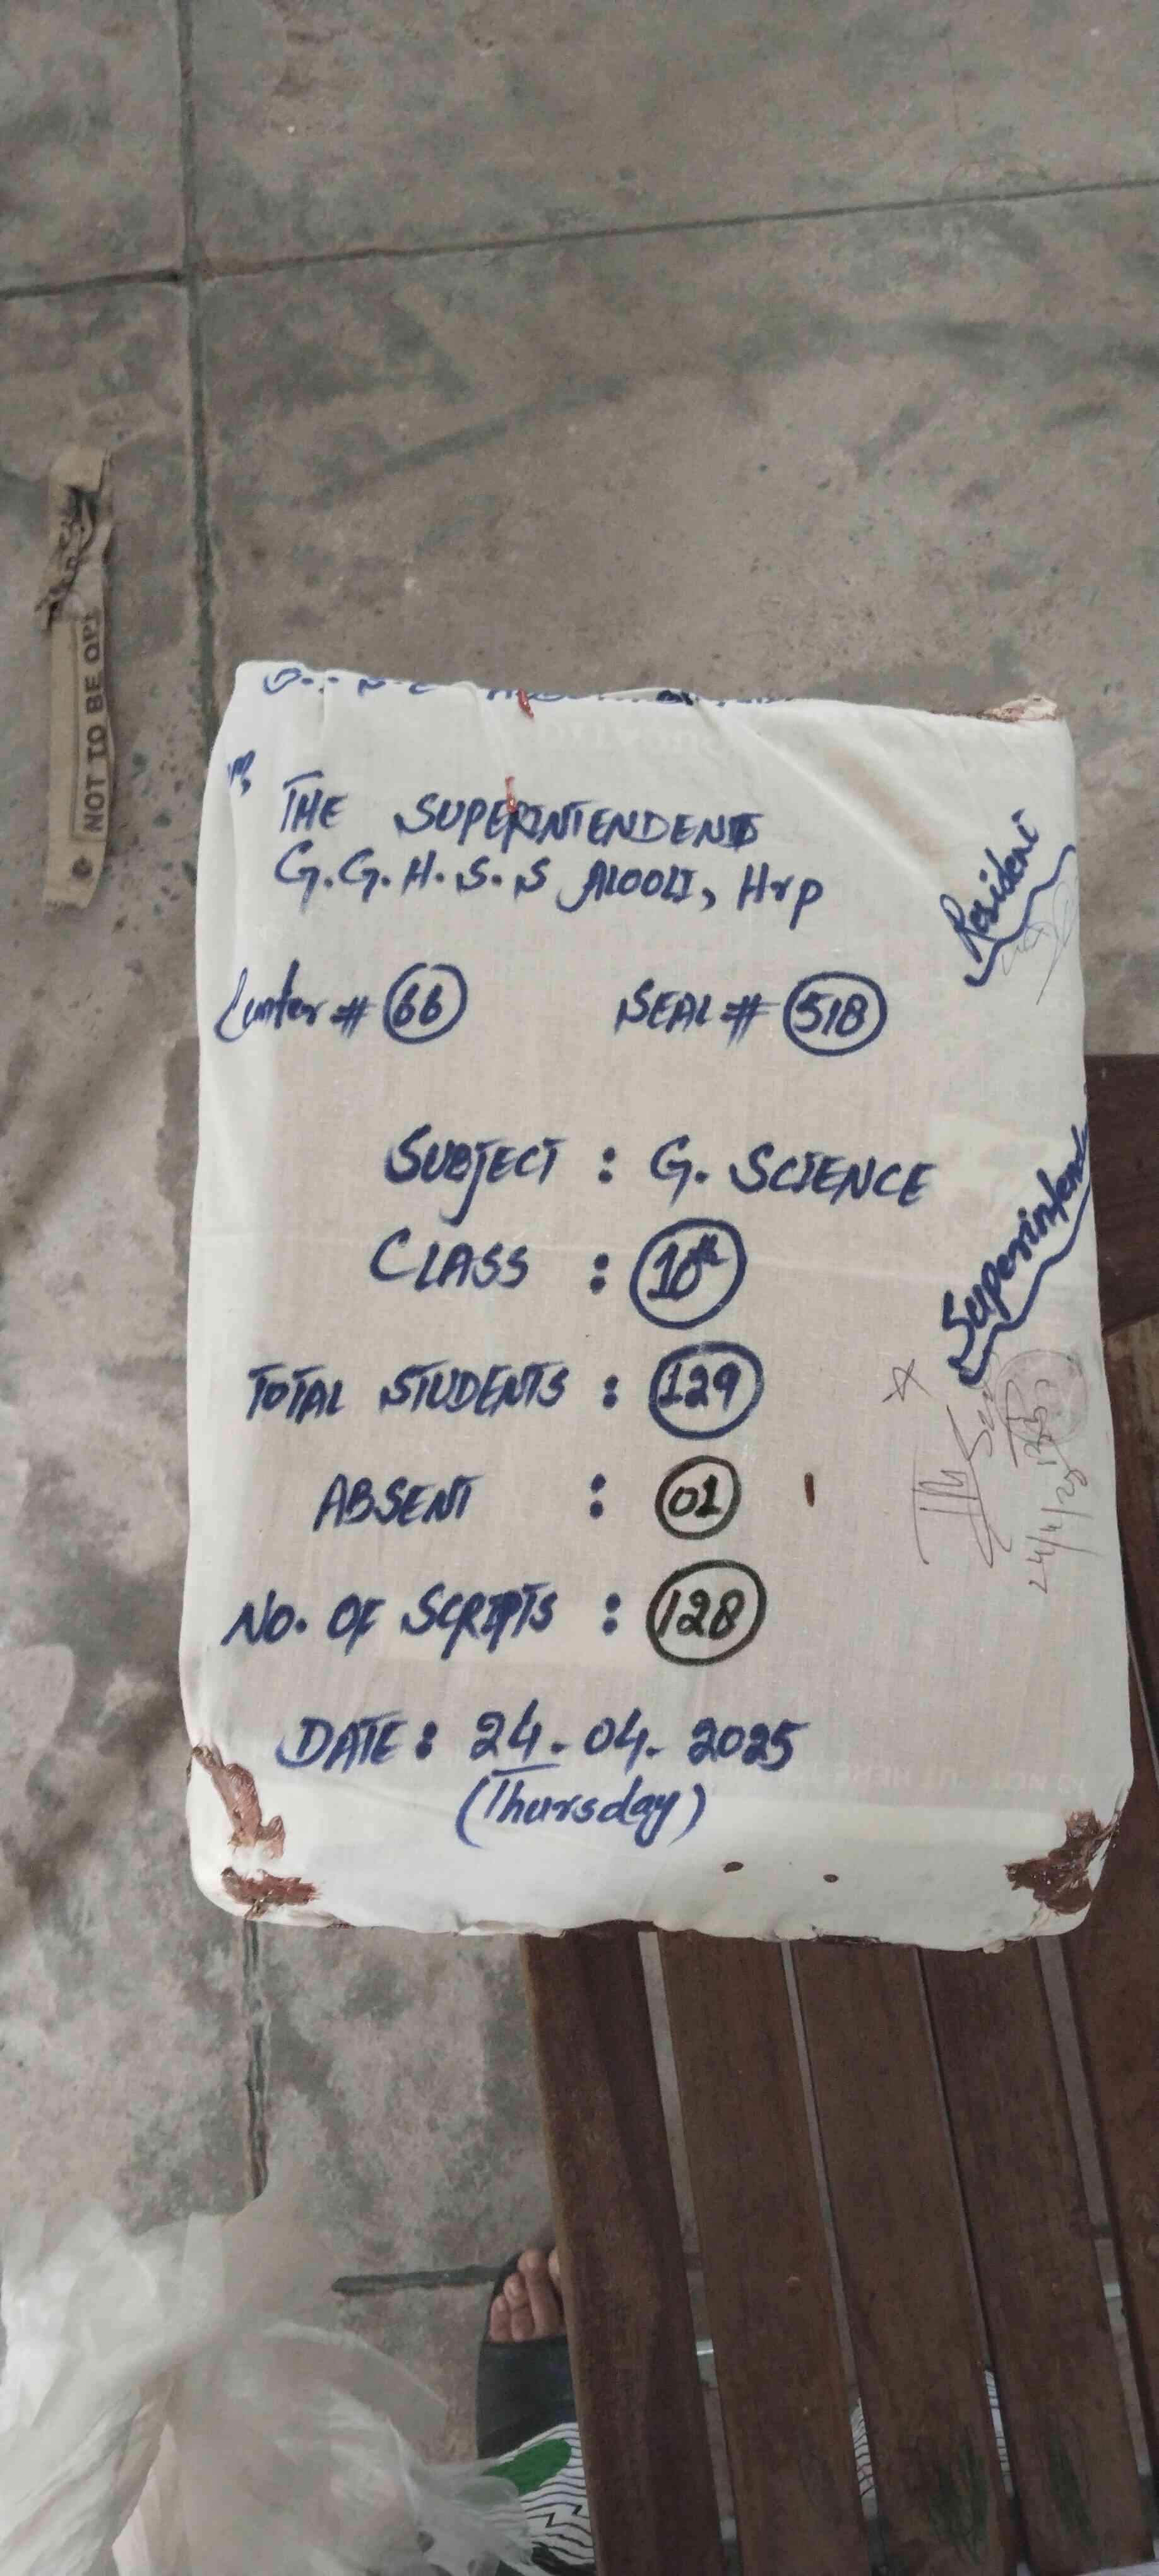 THE SUPERINTENDENT
G.G.H.S.S ALOOLI, Hrp
Center # 66 SEAL # 518
SUBJECT : G. SCIENCE
CLASS : 10th
TOTAL STUDENTS : 129
ABSENT : 01
NO. OF SCRIPTS : 128
DATE : 24.04.2025
(Thursday)
Resident
Superintend
24/4/25
NOT TO BE OPE